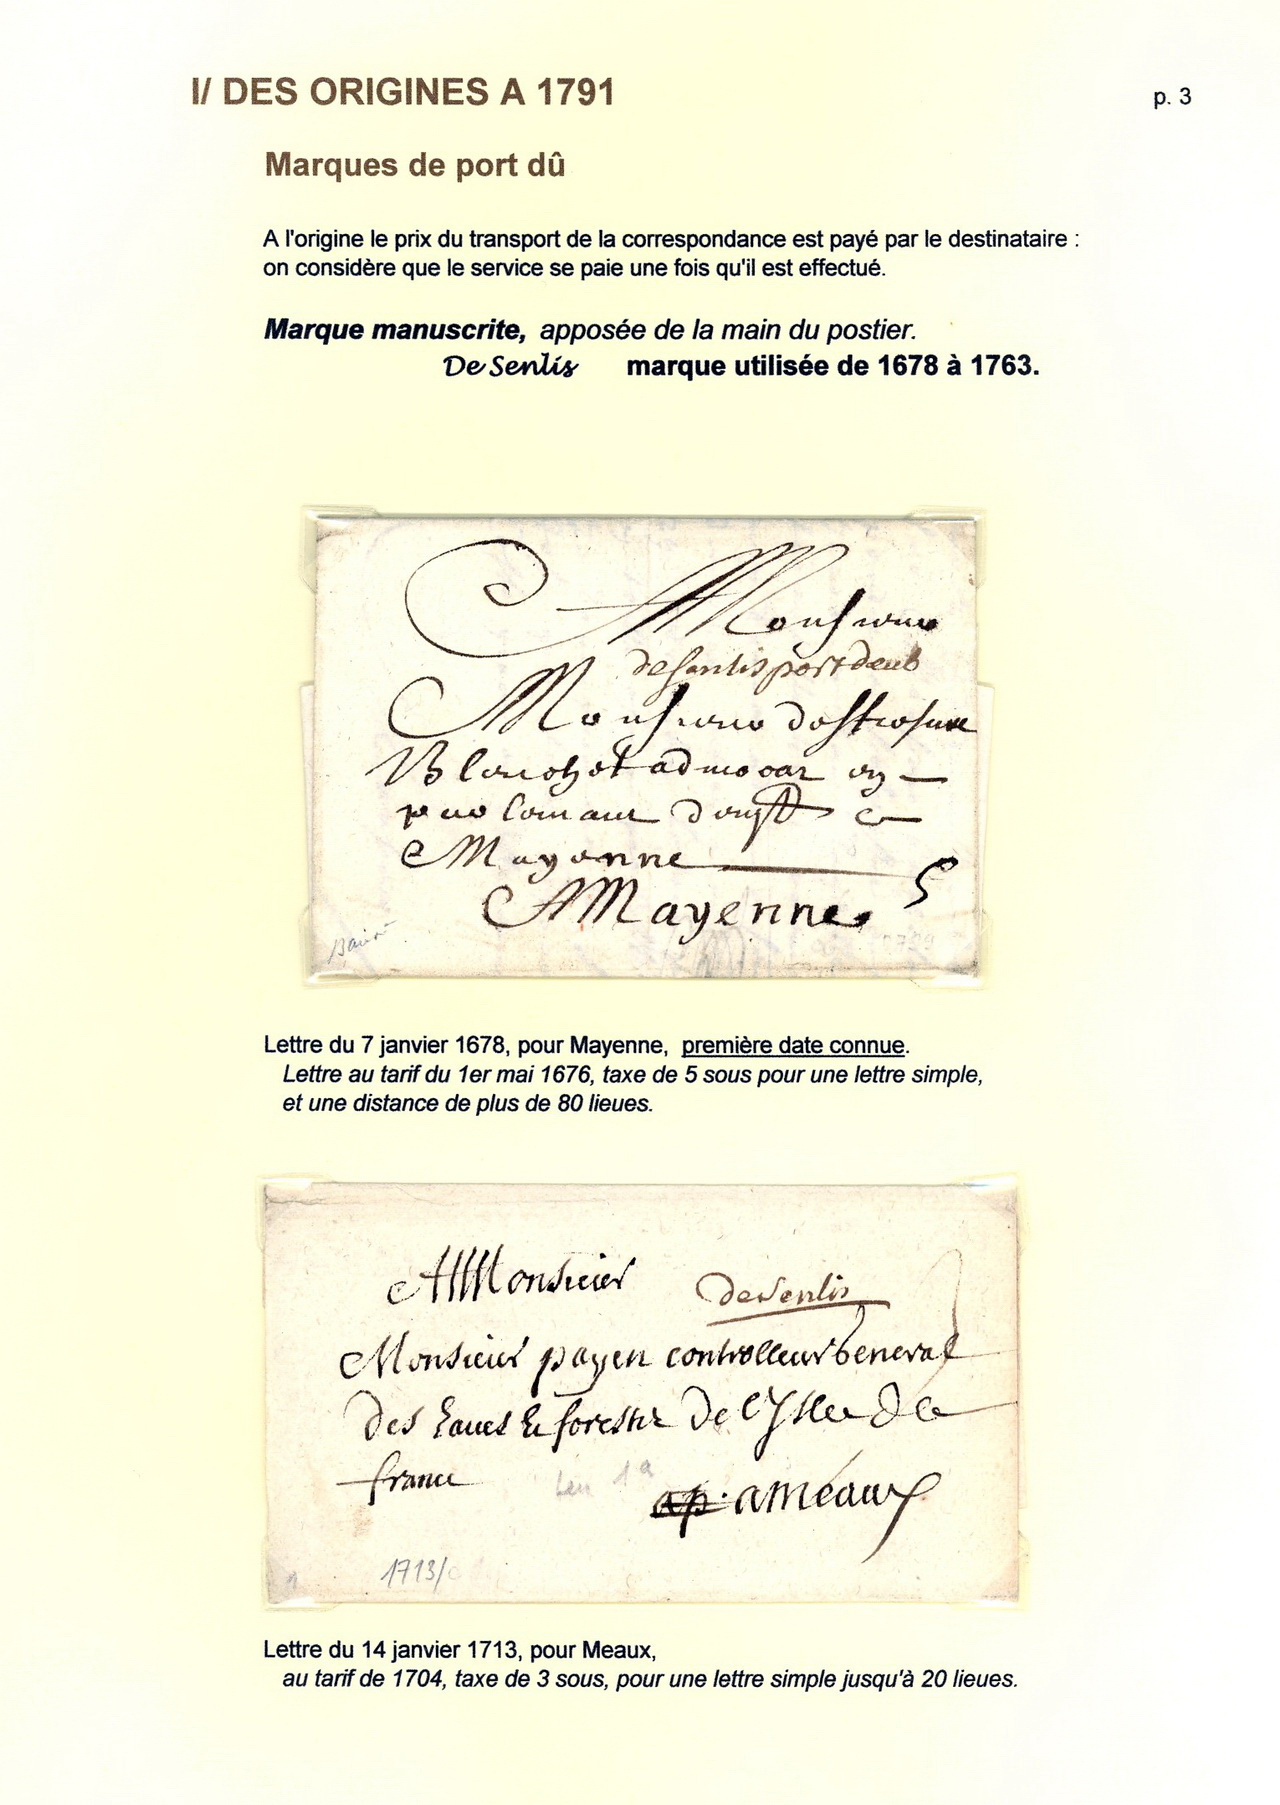 I/ DES ORIGINES A 1791
p. 3
Marques de port dû
A l'origine le prix du transport de la correspondance est payé par le destinataire :
on considère que le service se paie une fois qu'il est effectué.
Marque manuscrite, apposée de la main du postier.
De Senlis marque utilisée de 1678 à 1763.
A Monsieur
de senlis port deub
Monsieur
Mayenne
5
A Mayenne
Lettre du 7 janvier 1678, pour Mayenne, première date connue.
Lettre au tarif du 1er mai 1676, taxe de 5 sous pour une lettre simple,
et une distance de plus de 80 lieues.
A Monsieur
de senlis
Monsieur payen controlleur General
des Eaues & forestz de lysle de
france
a meaux
1713/
Lettre du 14 janvier 1713, pour Meaux,
au tarif de 1704, taxe de 3 sous, pour une lettre simple jusqu'à 20 lieues.